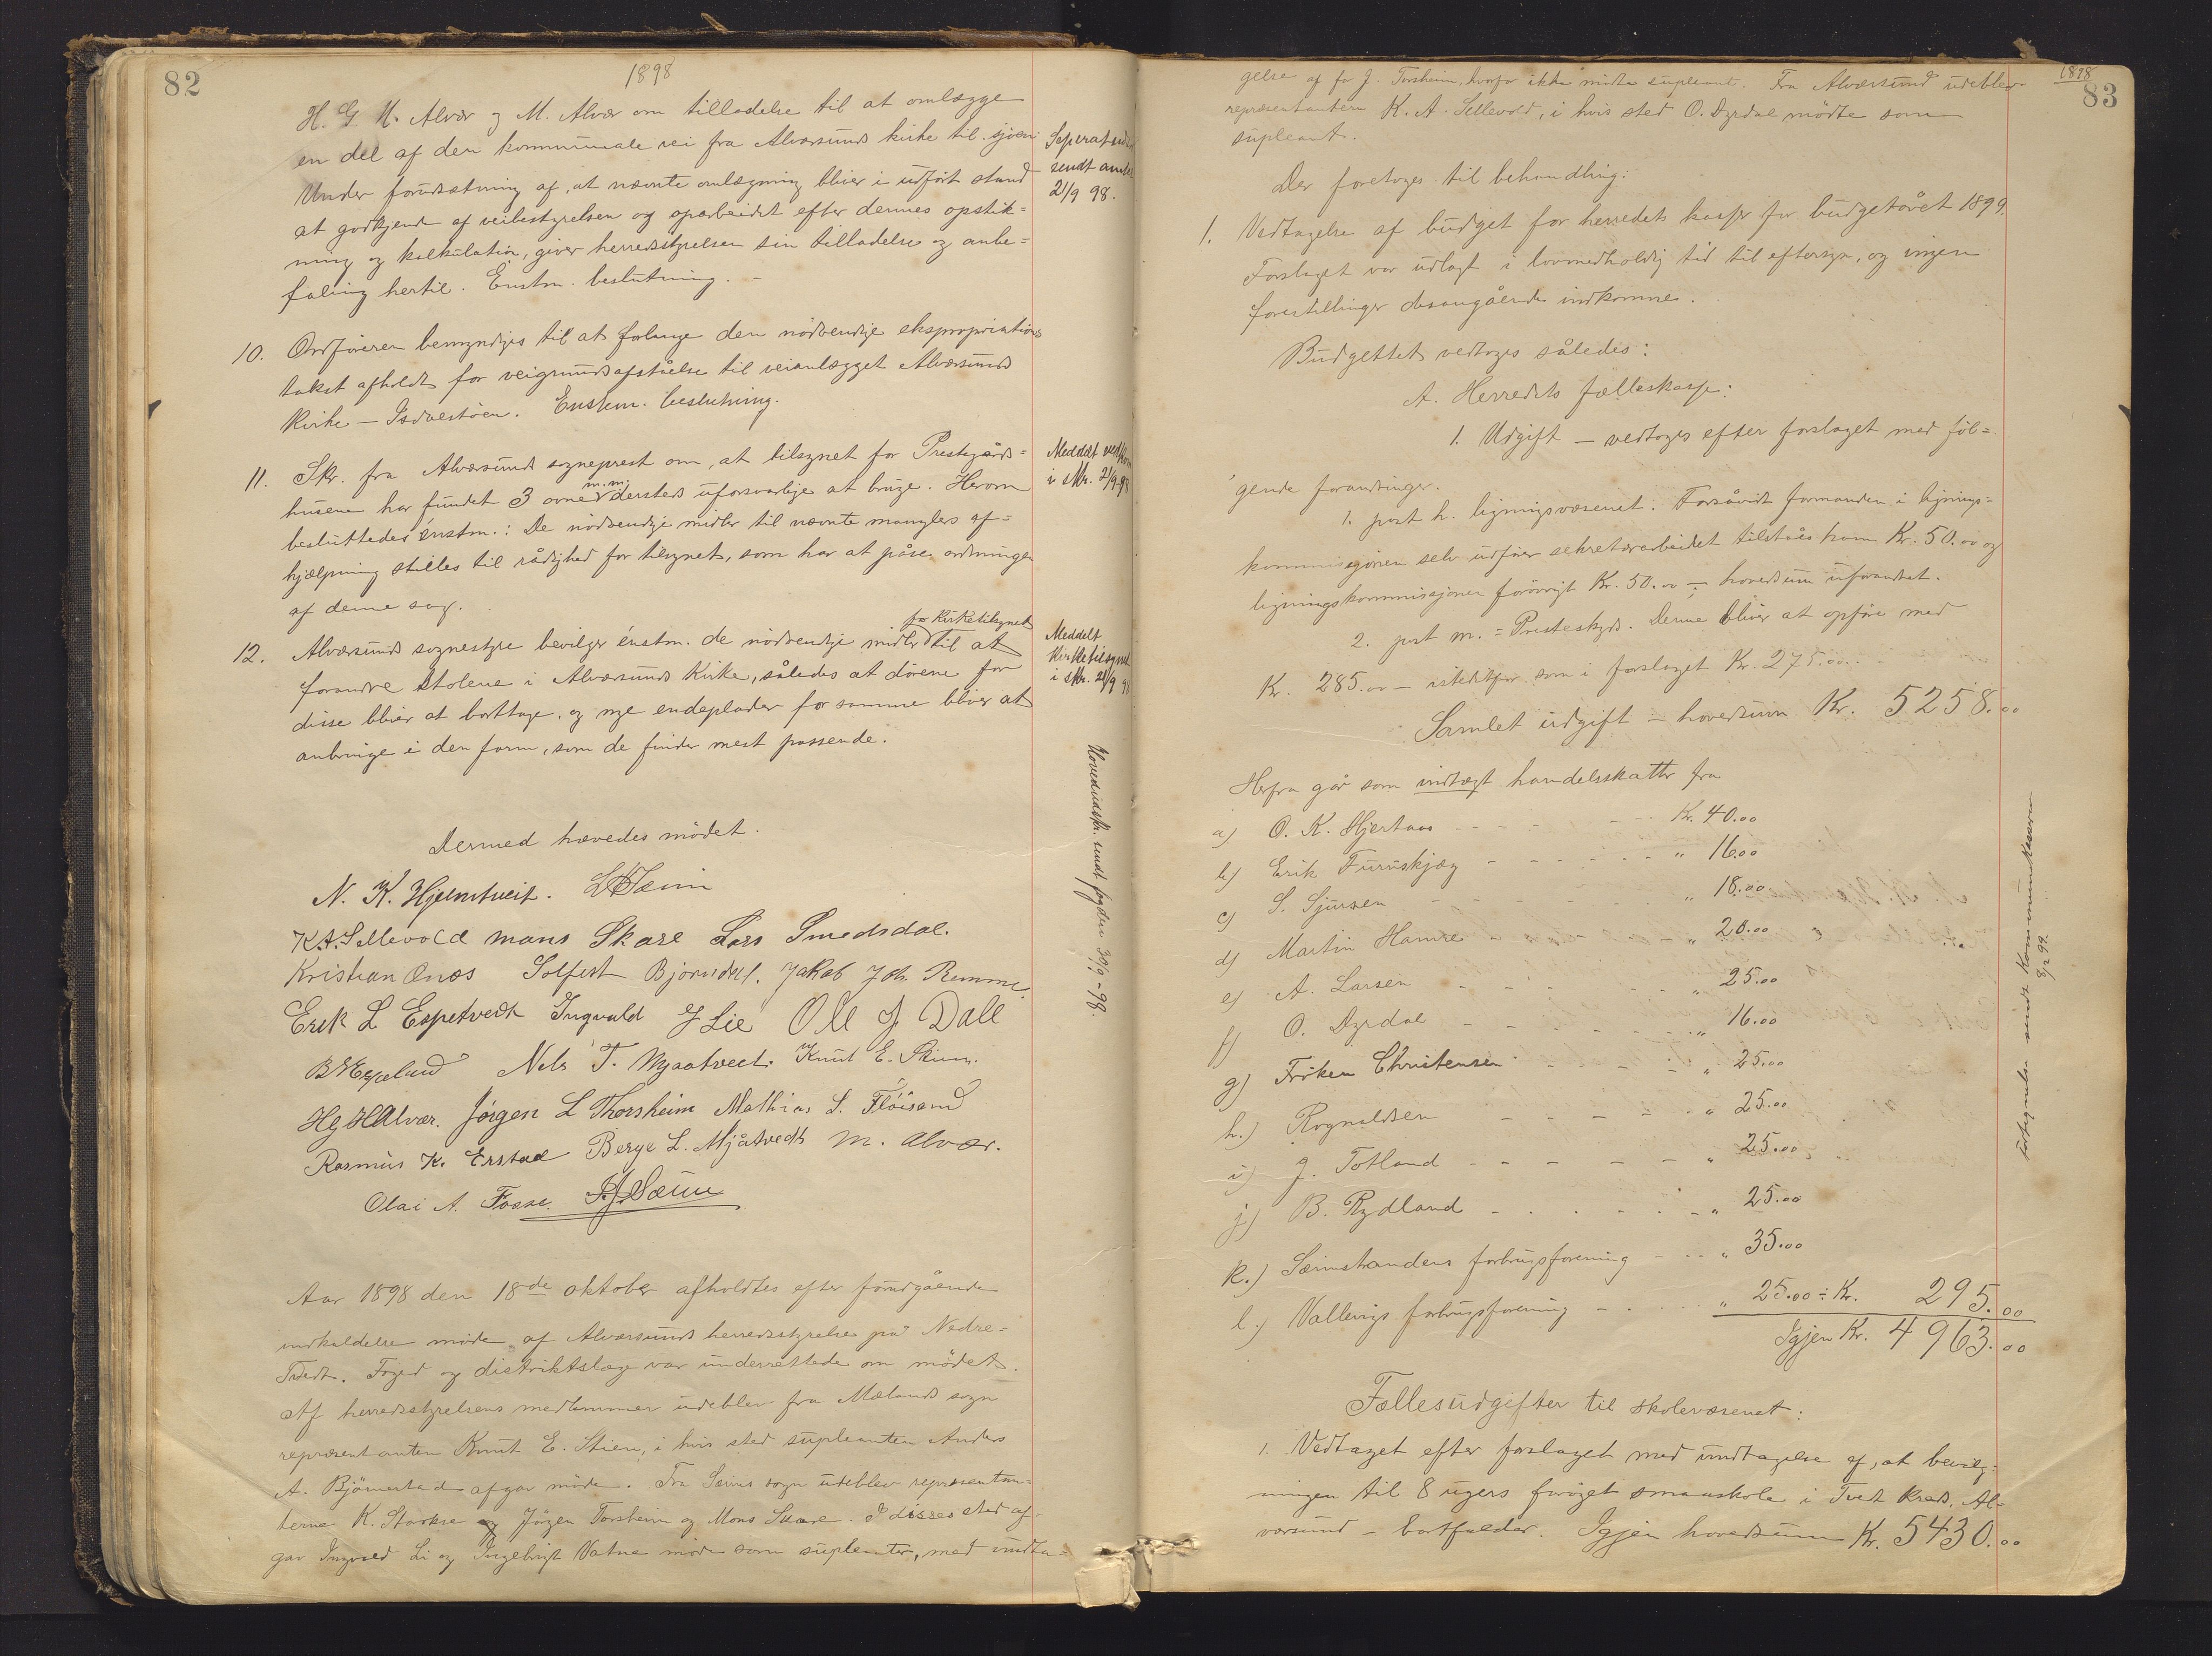 82
1898
H. G. H. Alvær og M. Alvær om tilladelse til at omlægge
en del af den kommunale vei fra Alværsunds kirke til sjøen.
Under forudsætning af, at nævnte omlægning bliver i udført stand
at godkjende af veibestyrelsen og oparbeidet efter dennes opstik=
ning og kalkulation, giver herredsstyrelsen sin tilladelse og anbe=
faling hertil. Enstm. beslutning. –
Seperatudsk
sendt amtet
21/9 98.
10. Ordføreren bemyndiges til at forlange den nødvendige ekspropriations
takst afholdt for veigrundsafståelse til veianlægget Alværsunds
kirke – Isdalstøen. Enstem. beslutning.
11. Skr. fra Alværsunds sogneprest om, at tilsynet for Prestegårds=
husene har fundet 3 ovne m.m. dersteds uforsvarlige at bruge. Herom
besluttedes énstm.: De nødvendige midler til nævnte manglers af=
hjælpning stilles til rådighed for tilsynet, som har at påse ordningen
af denne sag.
Meddelt vedkom
i skr. 21/9-98
12. Alværsunds sognestyre bevilger énstm. de nødvendige midler for Kirketilsynet til at
forandre stolene i Alværsunds Kirke, således at dørene for
disse bliver at borttage, og nye endeplader for samme bliver at
anbringe i den form, som de finder mest passende.
Meddelt
Kirketilsynet
i skr. 21/9 98
Hovedudskr. sendt fogden 30/9 – 98.
Dermed hævedes mödet.
N. K. Hjelmtveit. L Sæim
K.A. Sellevold Mons Skare Lars Smedsdal.
Kristian Onæs Solfest Bjørndal. Jakob Joh. Remme.
Erik L Espetvedt Ingvald J Lie Ole J. Dale
B Espeland Nils T. Mjaatvedt. Knut E. Stien.
H g H Alvær. Jörgen L Thorsheim Mathias S. Flöisand
Rasmus K. Erstad Berge L. Mjåtvedt M. Alvær.
Olai A. Fosse. J. Sæim
Aar 1898 den 18de oktober afholdtes efter forudgående
indkaldelse møde af Alværsunds herredsstyrelse på Nedre=
Tvedt. Foged og distriktslæge var underrettede om mödet.
Af herredsstyrelsens medlemmer udeblev fra Mælands sogn
repræsentanten Knut E. Stien, i hvis sted supleanten Anders
A. Björnestad afgav møde. Fra Seims sogn udeblev repræsentan=
terne K. Storkse og Jörgen Torsheim og Mons Skare. I disses sted af=
gav Ingvald Li og Ingebrigt Vatne møde som supleanter, med undta=
1898
83
gelse af for J. Torsheim, hvorfor ikke mødte supleant. Fra Alværsund udeblev
repræsentanten K. A. Sellevold, i hvis sted O. Dyrdal mödte som
supleant.
Der foretoges til behandling:
1. Vedtagelse af budget for herredets kasse for budgetåret 1899.
Forslaget var udlagt i lovmedholdig tid til eftersyn, og ingen
forestillinger desangående indkomne.
Budgettet vedtoges således:
A. Herredets fælleskasse:
1. Udgift – vedtoges efter forslaget med föl=
gende forandringer.
1. post h. ligningsvæsenet. Forsåvidt formanden i lignings=
kommissjonen selv udfører sekretærarbeidet tilståes ham Kr. 50.00 og
ligningskommissjonen forövrigt Kr. 50.00 – hovedsum uforandret.
2. post m. = Presteskyds. Denne bliver at opføre med
Kr. 285.00 – istedetfor som i forslaget Kr. 275.00. –
Samlet udgift – hovedsum Kr. 5258.00
Herfra går som indtægt handelsskatter fra
a) O. K. Hjertaas – – – – Kr. 40.00
b) Erik Furuskjæg – – – – " 16.00
c) S. Sjursen – – – – " 18.00
d) Martin Hamre – – – – " 20.00
e) A. Larsen – – – – " 25.00
f) O. Dyrdal – – – – " 16.00
g) Fröken Christensen – – – " 25.00
h.) Rognaldsen – – – – " 25.00
i) J. Totland – – – – – " 25.00
j) B. Rydland – – – – " 25.00
k.) Sæimstrandens forbrugsforening – – " 35.00
l.) Vallerings forbrugsforening – – – " 25.00 = Kr. 295.00
Igjen Kr. 4963.00
Fortegnelse sendt Kommunekassereren
8/2 99.
Fællesudgifter til skolevæsenet:
1. Vedtaget efter forslaget med undtagelse af, at bevilg=
ningen til 8 ugers forøget smaaskole i Tvedt Kreds, Al=
værsund – bortfalder. Igjen hovedsum Kr. 5430.00